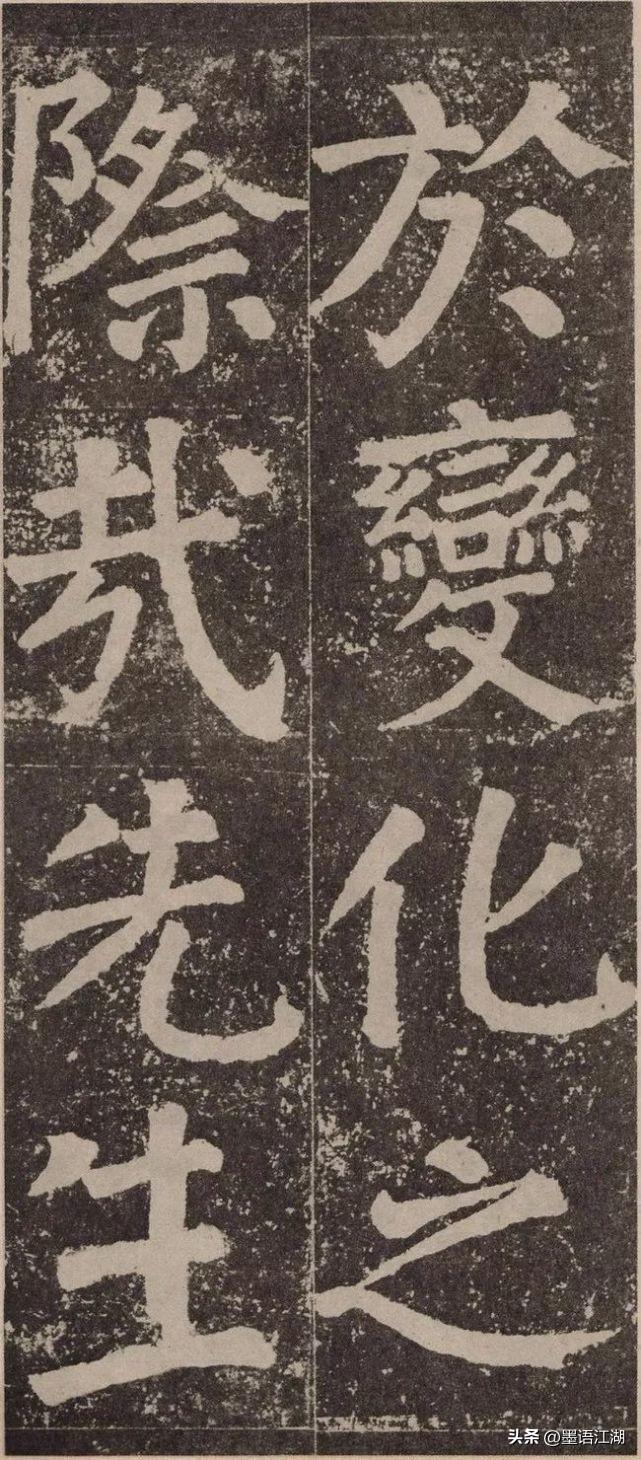 於變化之
際哉先生
头条 @墨语江湖